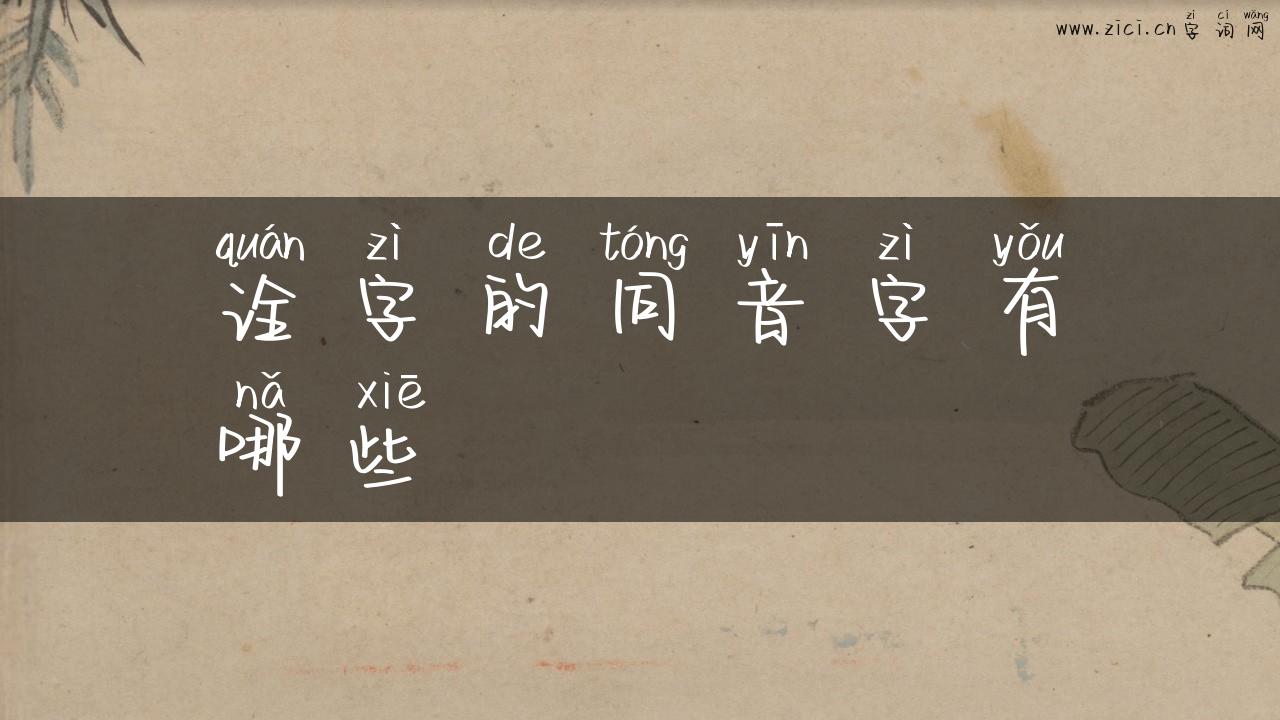 zì cí wǎng
www.zici.cn 字词网
quán zì de tóng yīn zì yǒu
诠字的同音字有
nǎ xiē
哪些